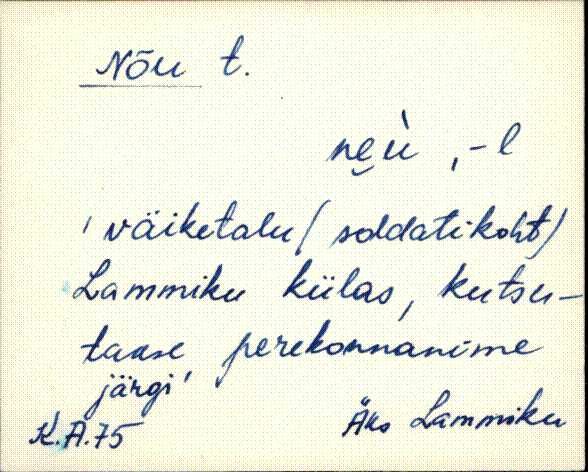 Nõu t.
ne̮ù, -l
'väiketalu (soldatikoht)
Lammiku külas, kutsu-
takse perekonnanime
järgi'
K.A.75 Äks Lammiku